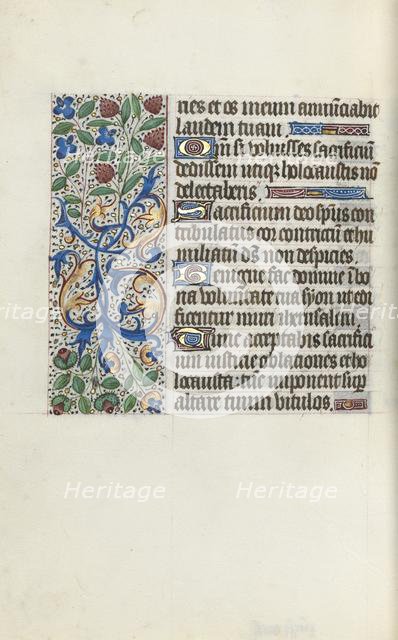 nes et os meum annūciabit
laudem tuam.
Qm̄ si voluisses sacrificiū
dedissem utiqȝ holocaustis nō
delectaberis.
Sacrificium deo spūs con
tribulatus cor contritū et hu
miliatū ds̄ non despicies.
Benigne fac domine ī bo
na voluntate tua syon ut edi
ficentur muri iherusalem
Tunc acceptabis sacrifici
um iusticie oblationes et ho
locausta: tūc imponent sup̄
altare tuum vitulos.
Heritage
Heritage
Heritage
Heritage
Heritage
Heritage